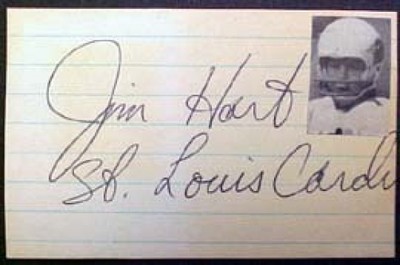 Jim Hart
St. Louis Cardi